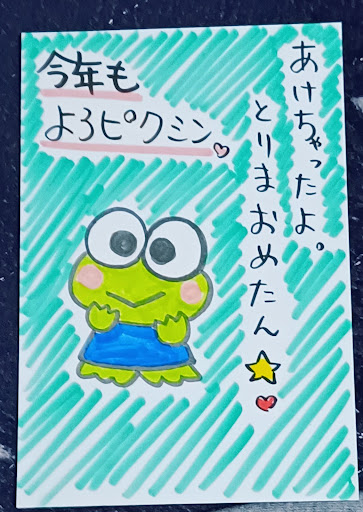 あけちゃったよ。
とりまおめたん
今年も
よろピクミン